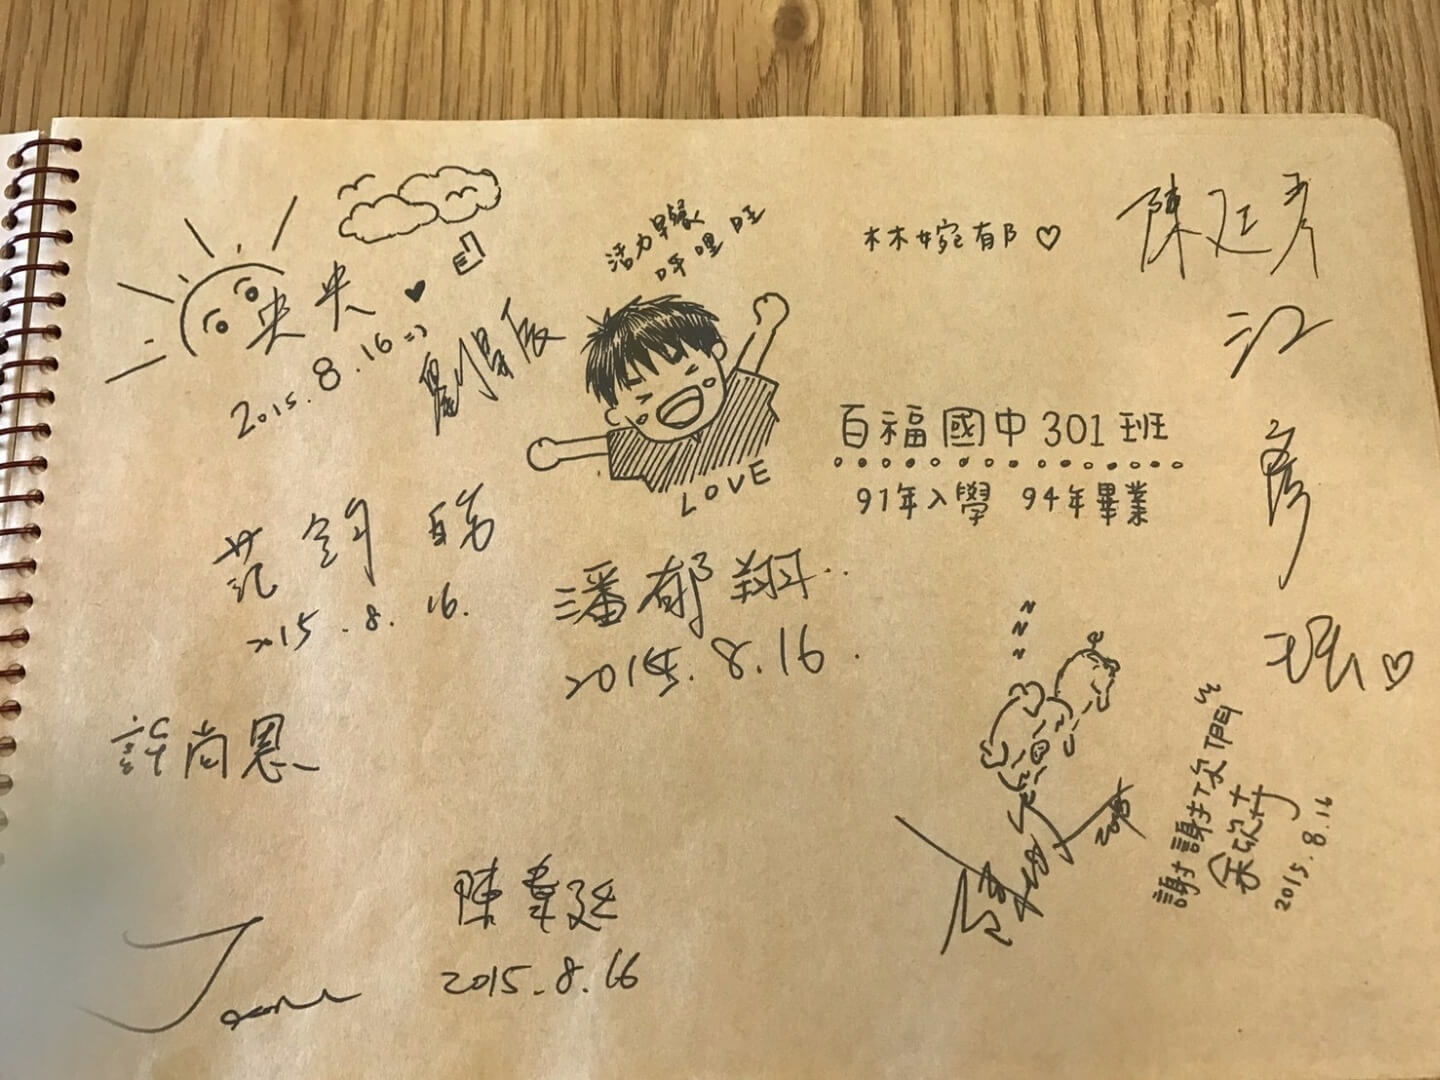 央央
2015.8.16 =)
活力早餐
呼哩旺
LOVE
林婉郁♡
陳廷彥
百福國中301班
91年入學 94年畢業
2015.8.16.
潘郁翔..
2015.8.16.
江彥珉♡
zzz
許尚恩
陳韋廷
2015.8.16
謝謝校友們
余欣芳
2015.8.16